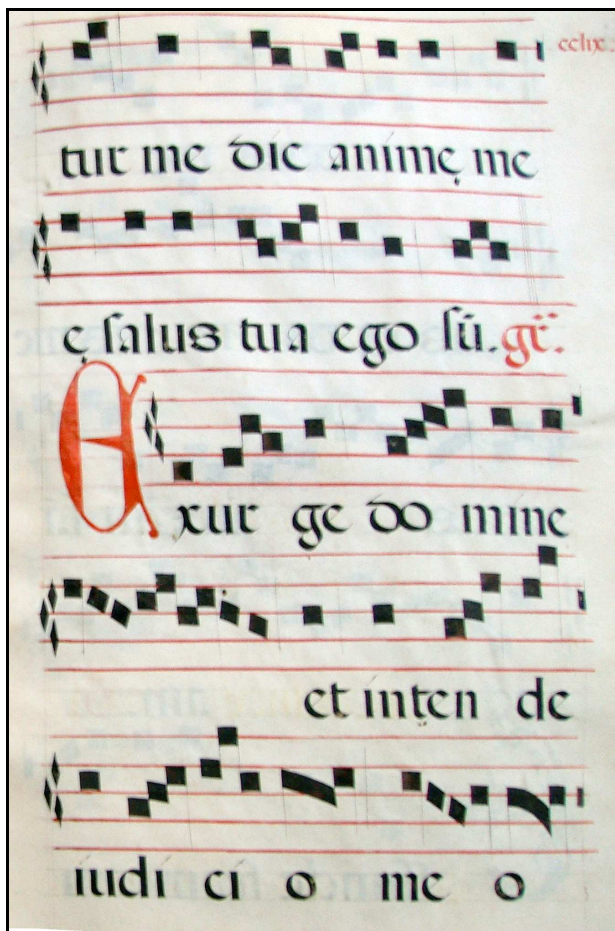 cclix
tur me dic animę me
ę salus tua ego sū. gr̄.
Exur ge do mine
et inten de
iudi ci o me o